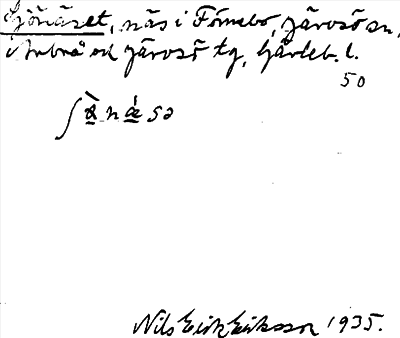 Sjönäset, näs i Förnebo, Järvsö sn,
i Arbrå och Järvsö tg, Gävleb. l.
50
∫æ̀nǽsə
Nils Erik Eriksson 1935.